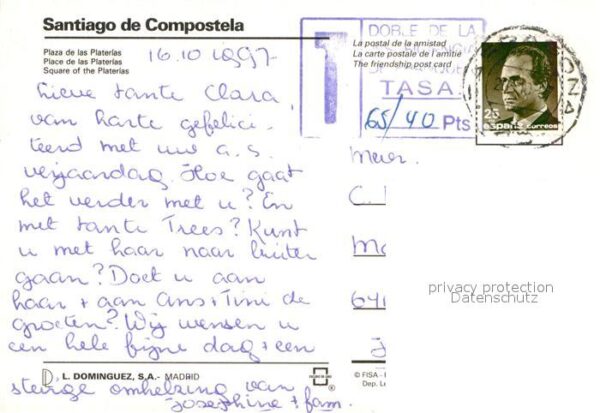 Santiago de Compostela
Plaza de las Platerías
Place de las Platerias
Square of the Platerías
16.10 1997
La postal de la amistad
La carte postale de l'amitié
The friendship post card
DOBLE DE LA
T
TASA
65/40 Pts
25
España correos
Lieve tante Clara,
van harte gefelici-
teerd met uw a.s.
verjaardag. Hoe gaat
het verder met u? En
met tante Trees? Kunt
u met haar naar buiten
gaan? Doet u aan
haar + aan Ans + Tini de
groeten? Wij wensen u
een hele fijne dag + een
stevige omhelzing van
Josephine + fam.
Meier.
C.
privacy protection
Datenschutz
L. DOMINGUEZ, S.A.- MADRID
© FISA -
Dep. L